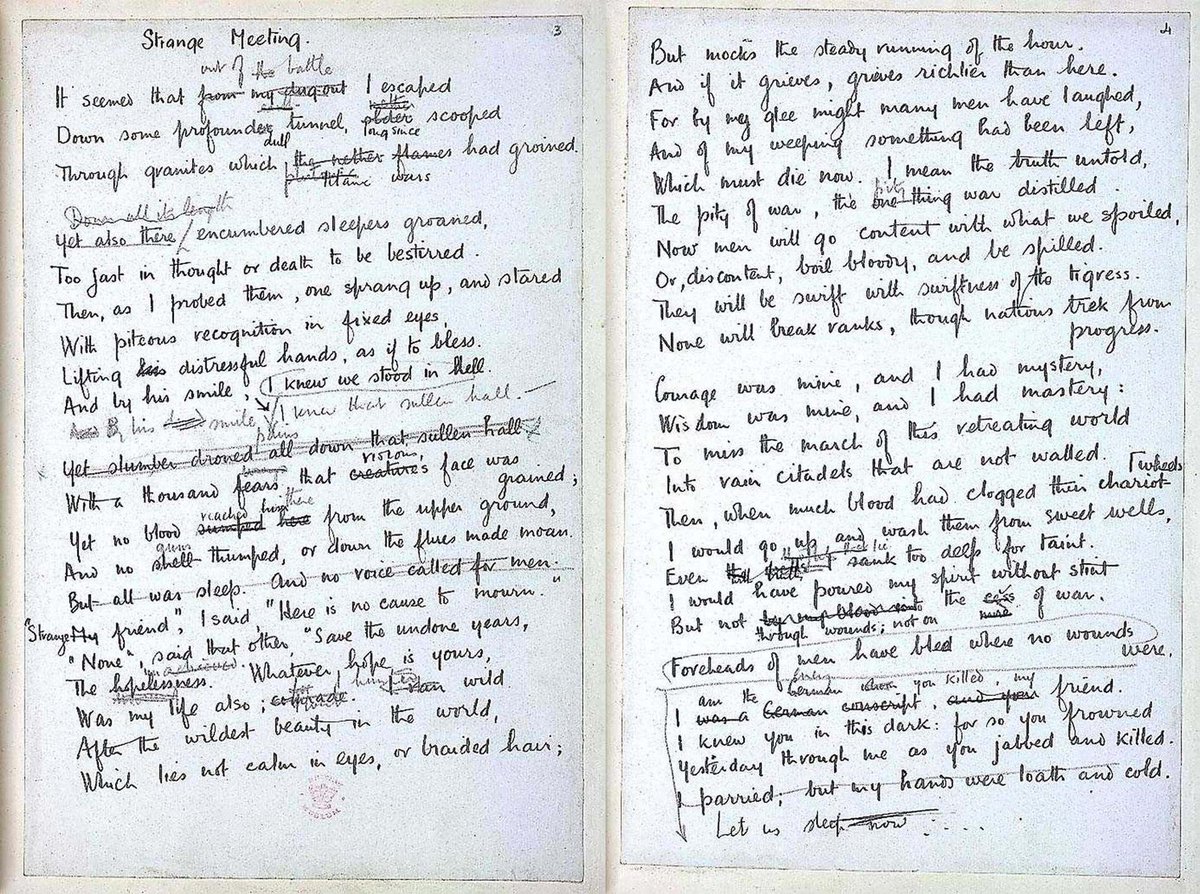 3
Strange Meeting.
out of the battle
It seemed that from my dug-out I escaped
Down some profounder tunnel, older scooped
dull long since
Through granites which the nether flames had groined.
Titanic wars
Down all its length
Yet also there encumbered sleepers groaned,
Too fast in thought or death to be bestirred.
Then, as I probed them, one sprang up, and stared
With piteous recognition in fixed eyes,
Lifting his distressful hands, as if to bless.
And by his smile, I knew we stood in Hell.
And By his smile I knew that sullen hall.
Yet slumber droned all down that sullen hall
pains visions,
With a thousand fears that creatures face was grained;
reached him there
Yet no blood sumped here from the upper ground,
guns
And no shell thumped, or down the flues made moan.
But all was sleep. And no voice called for men.
"Strange My friend", I said, "Here is no cause to mourn."
"None", said that other, "Save the undone years,
The hopelessness. Whatever hope is yours,
Was my life also; I ran wild
After the wildest beauty in the world,
Which lies not calm in eyes, or braided hair;
4
But mocks the steady running of the hour.
And if it grieves, grieves richlier than here.
For by my glee might many men have laughed,
And of my weeping something had been left,
Which must die now. I mean the truth untold,
pity
The pity of war, the one thing war distilled.
Now men will go content with what we spoiled,
Or, discontent, boil bloody, and be spilled.
They will be swift with swiftness of the tigress.
None will break ranks, though nations trek from
progress.
Courage was mine, and I had mystery,
Wisdom was mine, and I had mastery:
To miss the march of this retreating world
Into vain citadels that are not walled.
wheels
Then, when much blood had clogged their chariot
I would go up and wash them from sweet wells,
Even sank too deep for taint.
I would have poured my spirit without stint
But not by my blood the cess of war.
through wounds; not on
Foreheads of men have bled where no wounds
were.
am the enemy whom you killed, my
I was a German conscript, and your friend.
I knew you in this dark: for so you frowned
Yesterday through me as you jabbed and killed.
I parried; but my hands were loath and cold.
Let us sleep now ....